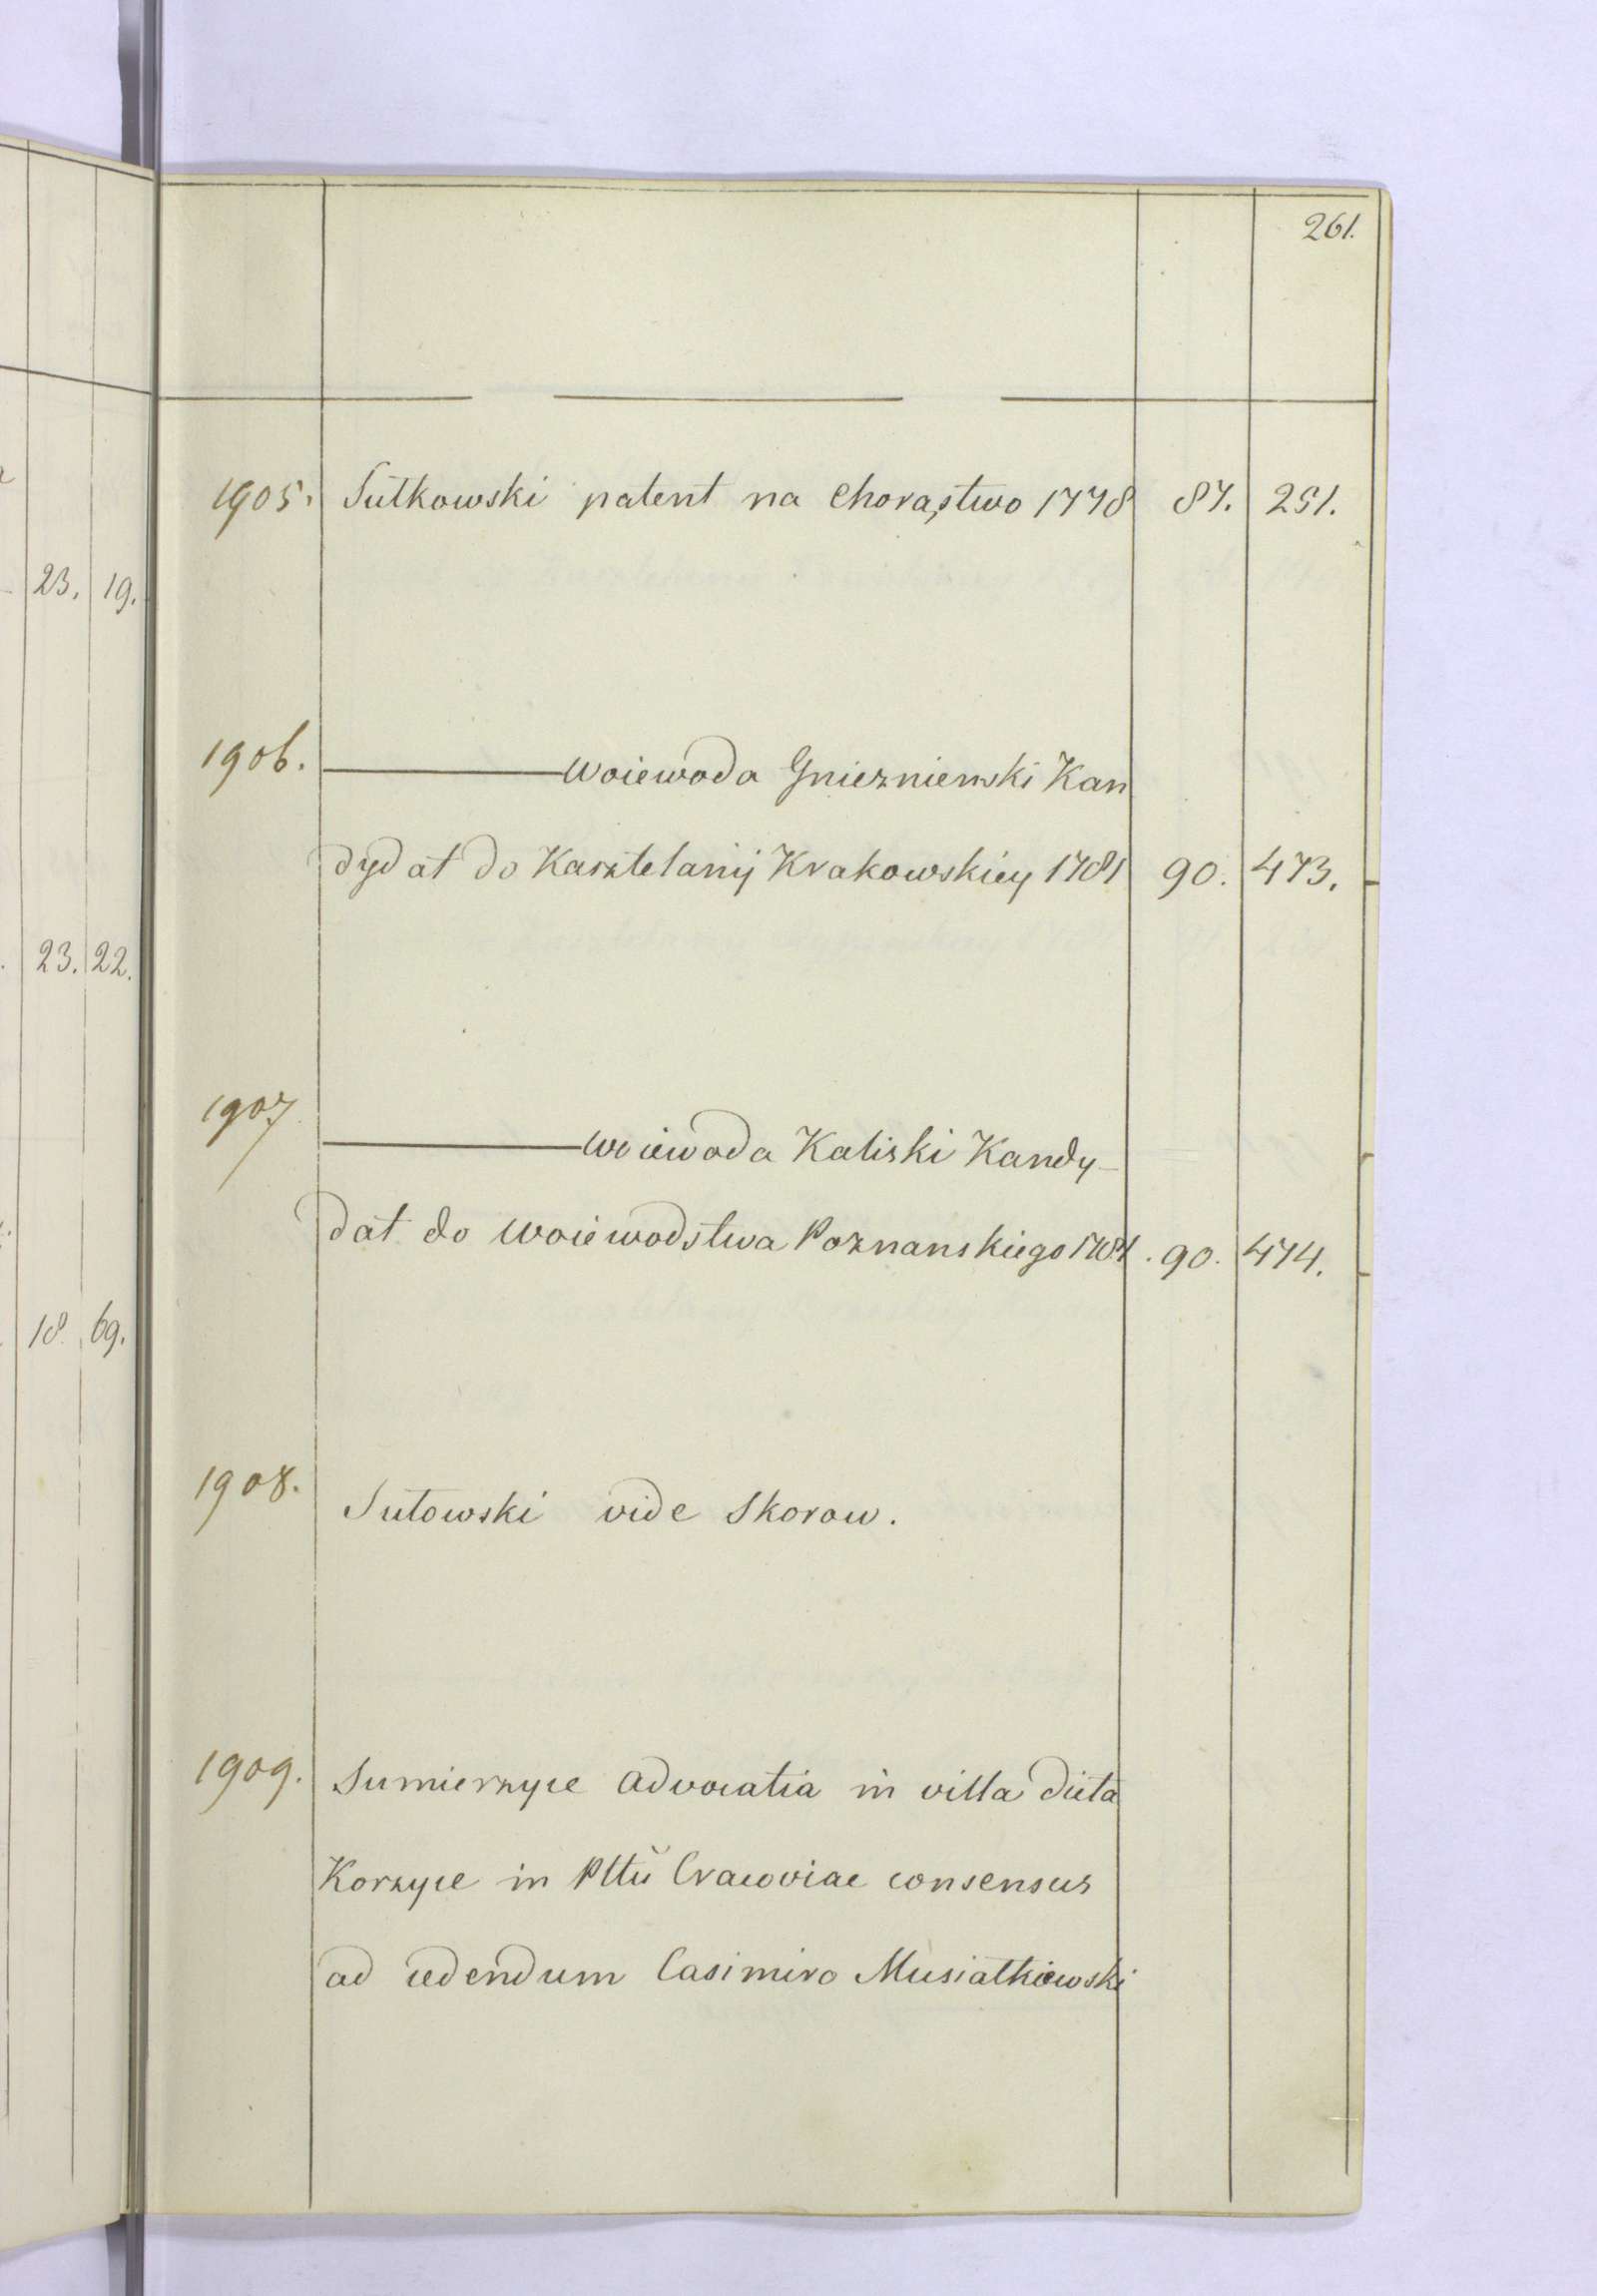 261.
1905. Sulkowski patent na Chorąstwo 1778 87. 251.
1906. Woiewoda Gnieznienski Kan
dydat do Kasztelanij Krakowskiey 1781 90. 473.
1907 Woiewoda Kaliski Kandy-
dat do Woiewodstwa Poznanskiego 1781. 90. 474.
1908. Sulowski vide Skorow.
1909. Sumierzyce Advocatia in villa dicta
Korzyce in Pltů Cracoviae consensus
ad cedendum Casimiro Musialkiowski
23. 19.
23. 22.
18. 69.